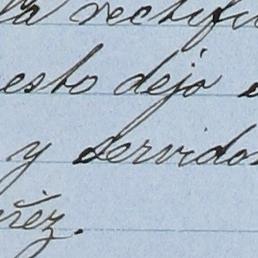 la rectifi
esto dejo
y servido
ñez.